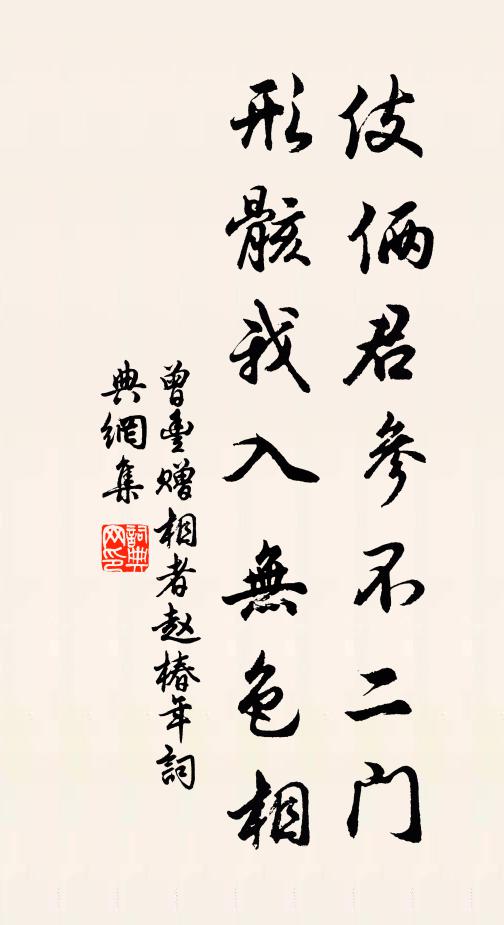 伎倆君參不二门
形骸我入無色相
曾豐赠相者赵椿年詞
典網集
詞典
网印